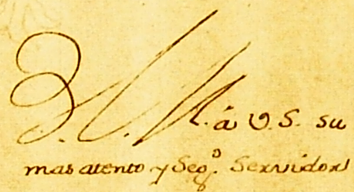 B. L. M. á V. S. su
mas atento y Seg.º Servidor